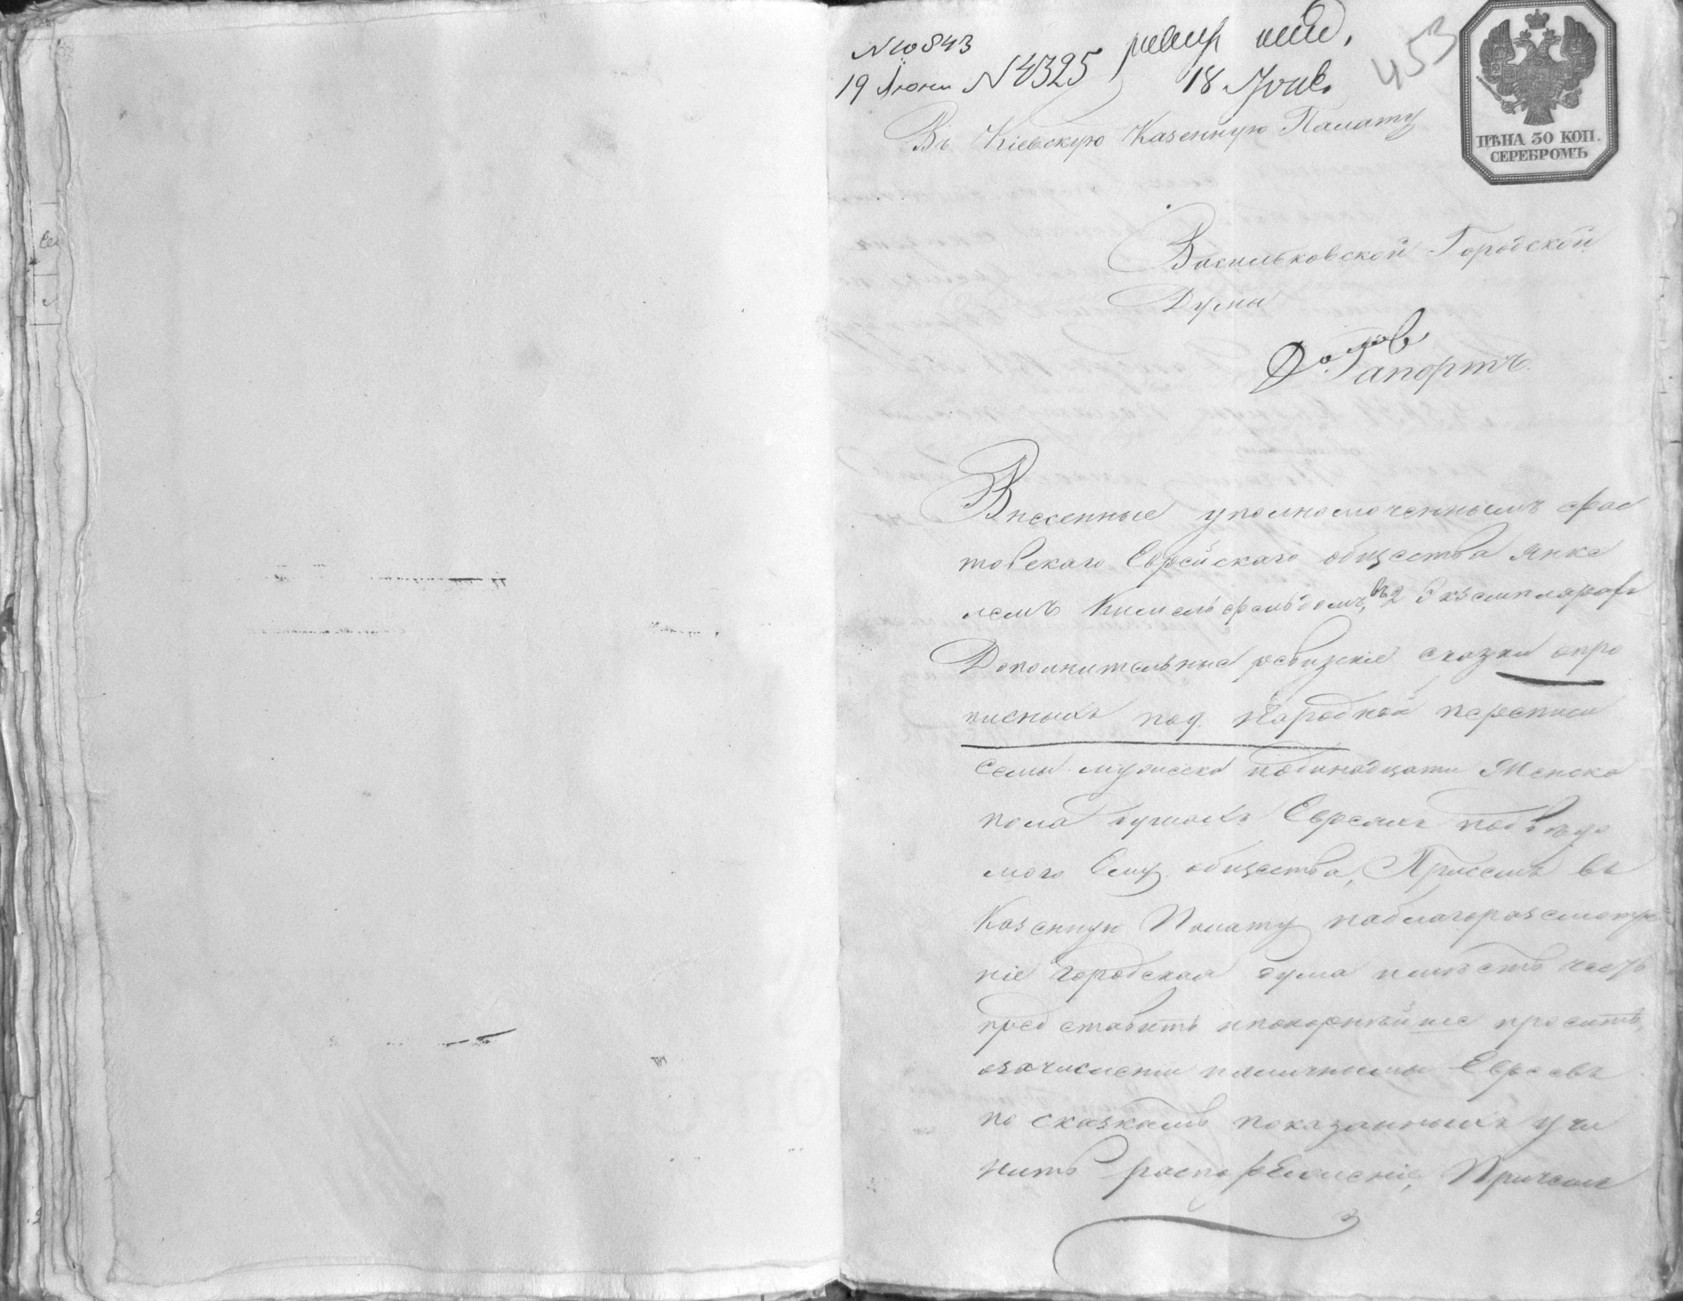 № 10843
19 Июня № 4325
18 Июня
453
ЦѢНА 30 КОП.
СЕРЕБРОМЪ
Въ Кіевскую Казенную Палату
Васильковской Городской
Думы
Рапортъ
Внесенные уполномоченнымъ фас
товскаго Еврейскаго общества Янке
лемъ Кимельфельдомъ, въ 2 Экземплярахъ
Дополнительные ревизкіе сказки опро
писныхъ под. Народной переписи
семи мужеска иодинадцати Женска
пола душахъ Евреямъ подвѣдо
мого Ему общества, Присемъ въ
Казенную Палату наблагоразсмотре
ніе Городская Дума имѣетъ честь
представить ипокорнѣйше проситъ,
озачисленіи Евреевъ
по сказкамъ показанныхъ учи
нить распоряженіе, Причемъ